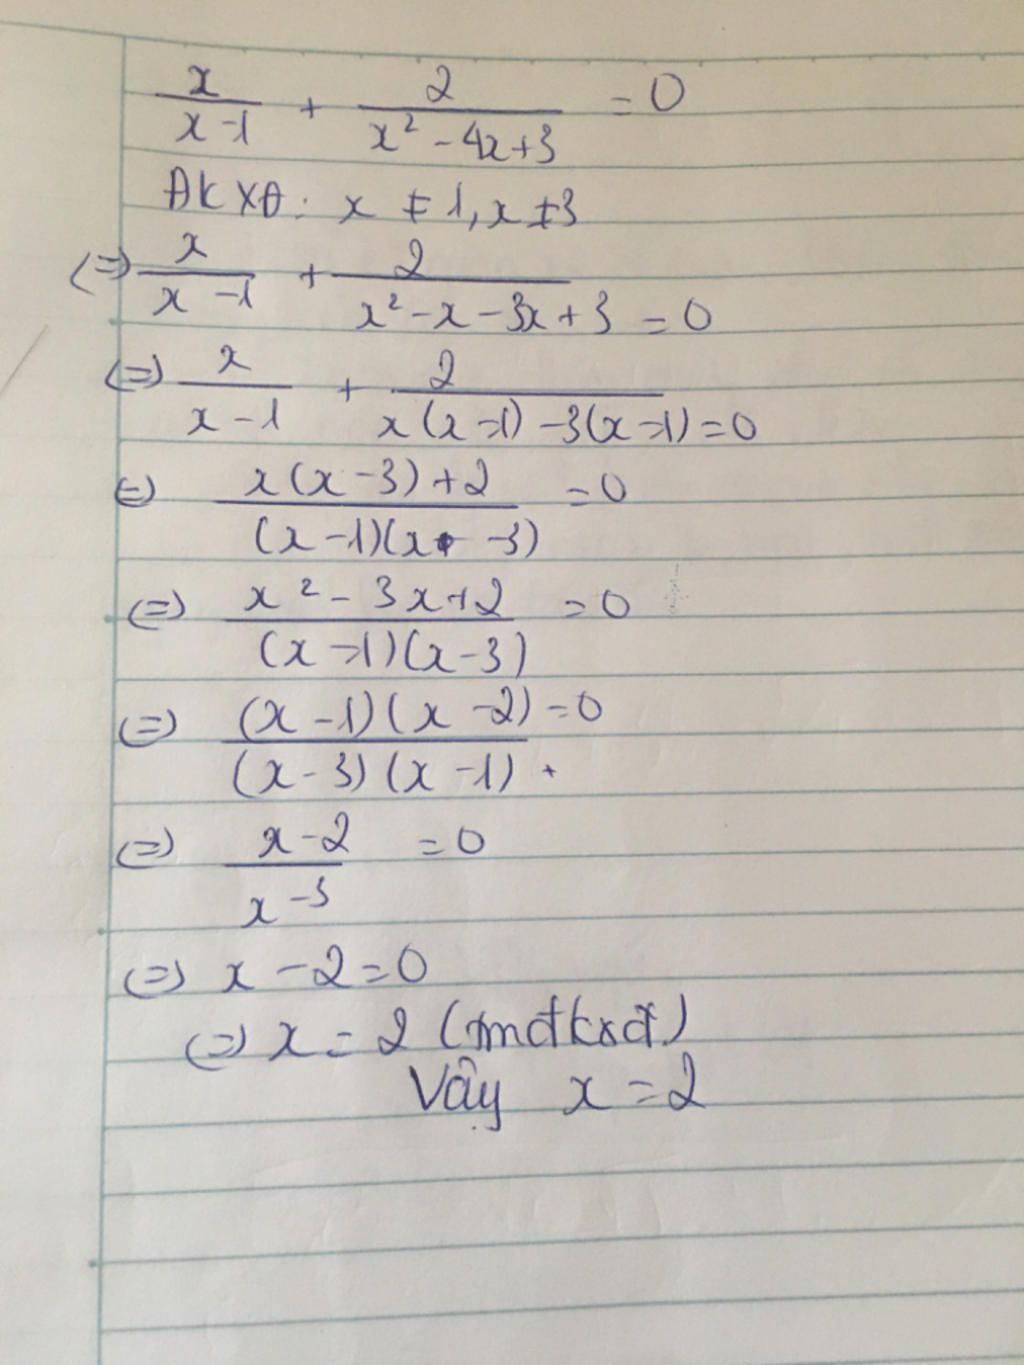 x/(x-1) + 2/(x²-4x+3) = 0
ĐKXĐ: x ≠ 1, x ≠ 3
(=) x/(x-1) + 2/(x²-x-3x+3) = 0
(=) x/(x-1) + 2/(x(x-1)-3(x-1)) = 0
(=) (x(x-3)+2)/((x-1)(x-3)) = 0
(=) (x²-3x+2)/((x-1)(x-3)) = 0
(=) ((x-1)(x-2))/((x-3)(x-1)) = 0
(=) (x-2)/(x-3) = 0
(=) x-2=0
(=) x = 2 (tmđkxđ)
Vậy x = 2